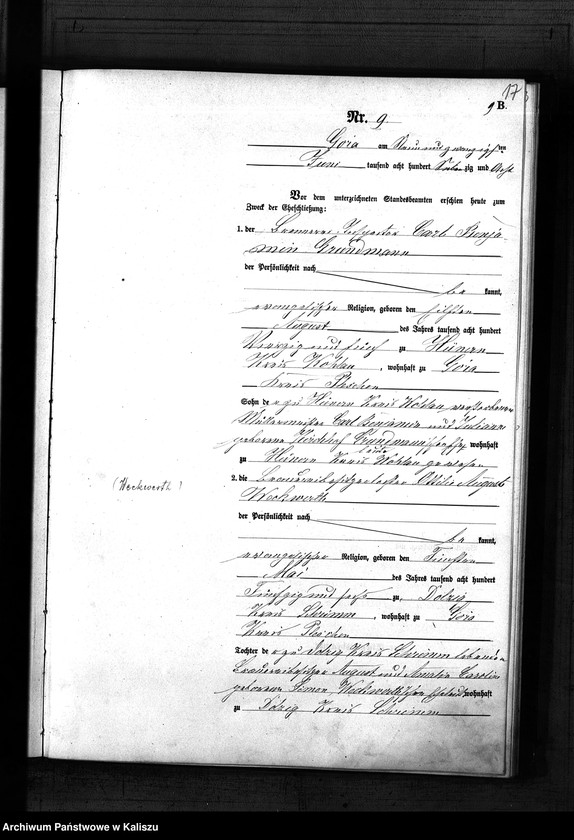 17
9 B.
Nr. 9
Góra am Neun und zwanzigsten
Juni tausend acht hundert Sieben zig und Acht
Vor dem unterzeichneten Standesbeamten erschien heute zum
Zweck der Eheschließung:
1. der Brennerei Inspector Carl Benja-
min Grundmann
der Persönlichkeit nach
be kannt,
evangelischer Religion, geboren den
August des Jahres tausend acht hundert
Vierzig und fünf zu Heinern
Kreis Wohlau, wohnhaft zu Góra
Kreis Pleschen
Sohn de r zu Heinern Kreis Wohlau verstorbenen
Müllermeister Carl Benjamin und Juliane
geborene Grundmann'schen wohnhaft
zu Heinern Kreis Wohlau gewesen
2. die Brauereibesitzertochter Ottilie Auguste
Weckwerth
(Weckwerth)
der Persönlichkeit nach
be kannt,
evangelischer Religion, geboren den Fünften
Mai des Jahres tausend acht hundert
Fünfzig und sechs zu Dolzig
Kreis Schrimm, wohnhaft zu Góra
Kreis Pleschen
Tochter de r zu Dolzig Kreis Schrimm lebenden
Brauereibesitzer August und Amalie Caroline
geborene Simon Weckwerth'schen Eheleute wohnhaft
zu Dolzig Kreis Schrimm
Archiwum Państwowe w Kaliszu